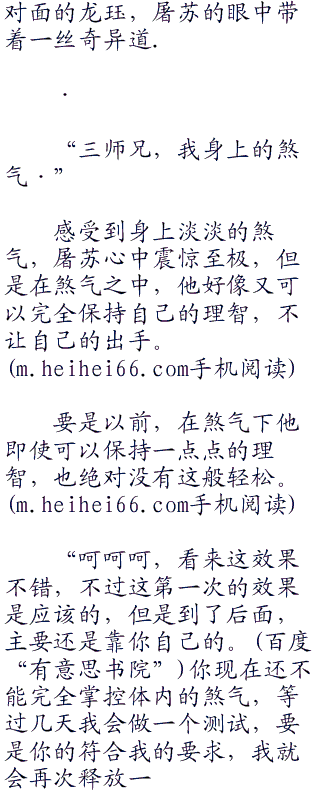 对面的龙珏，屠苏的眼中带
着一丝奇异道.
．
“三师兄，我身上的煞
气·”
感受到身上淡淡的煞
气，屠苏心中震惊至极，但
是在煞气之中，他好像又可
以完全保持自己的理智，不
让自己的出手。
(m.heihei66.com手机阅读)
要是以前，在煞气下他
即使可以保持一点点的理
智，也绝对没有这般轻松。
(m.heihei66.com手机阅读)
“呵呵呵，看来这效果
不错，不过这第一次的效果
是应该的，但是到了后面，
主要还是靠你自己的。(百度
“有意思书院”)你现在还不
能完全掌控体内的煞气，等
过几天我会做一个测试，要
是你的符合我的要求，我就
会再次释放一